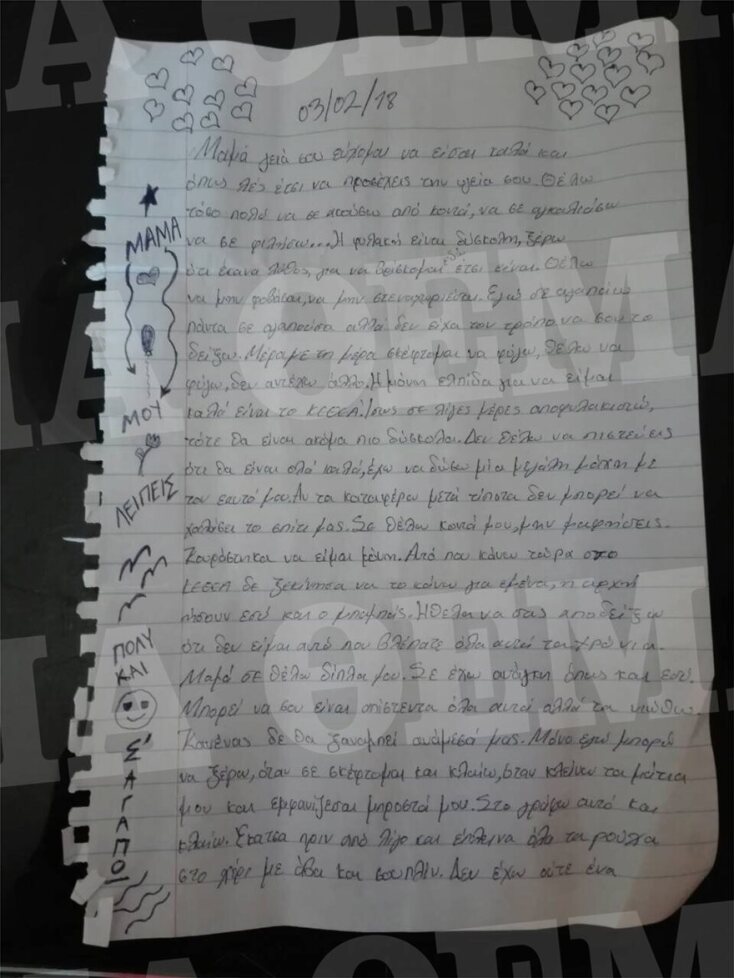 03/02/18
Μαμά γειά σου εύχομαι να είσαι καλά και
όπως λες έτσι να προσέχεις την υγεία σου. Θέλω
τόσο πολύ να σε από κοντά, να σε αγκαλιάσω
να σε φιλήσω.... Η φυλακή είναι δύσκολη, ξέρω
ότι έκανα λάθος, για να βρίσκομαι εδώ έτσι είναι. Θέλω
να μην φοβάσαι, να μην στεναχωριέσαι. Εγώ σε αγαπάω
πάντα σε αγαπούσα αλλά δεν είχα τον τρόπο να σου το
δείξω. Μέρα με τη μέρα σκέφτομαι να φύγω, θέλω να
φύγω, δεν αντέχω άλλο. Η μόνη ελπίδα για να είμαι
καλά είναι το ΚΕΘΕΑ. Ίσως σε λίγες μέρες αποφυλακιστώ,
τότε θα είναι ακόμα πιο δύσκολα. Δεν θέλω να πιστεύεις
ότι θα είναι όλα καλά, έχω να δώσω μία μεγάλη μάχη με
τον εαυτό μου. Αν τα καταφέρω μετά τίποτα δεν μπορεί να
χαλάσει το σπίτι μας. Σε θέλω κοντά μου, μην μ'αφήσεις.
Κουράστηκα να είμαι μόνη. Αυτό που κάνω τώρα στο
ΚΕΘΕΑ δε ξεκίνησα να το κάνω για εμένα, η αρχή
ήσουν εσύ και ο μπαμπάς. Ήθελα να σας αποδείξω
ότι δεν είμαι αυτό που βλέπατε όλα αυτά τα χρόνια.
Μαμά σε θέλω δίπλα μου. Σε έχω ανάγκη όπως και εσύ.
Μπορεί να σου είναι απίστευτα όλα αυτά αλλά τα νιώθω.
Κανένας δε θα ξαναμπεί ανάμεσά μας. Μόνο εγώ μπορώ
να ξέρω, όταν σε σκέφτομαι και κλαίω, όταν κλείνω τα μάτια
μου και εμφανίζεσαι μπροστά μου. Στο γράφω αυτό και
κλαίω. Έκατσα πριν από λίγο και έπλενα όλα τα ρούχα
στο χέρι με και σουπλίν. Δεν έχω ούτε ένα
ΜΑΜΑ
ΜΟΥ
ΛΕΙΠΕΙΣ
ΠΟΛΥ
ΚΑΙ
Σ'
ΑΓΑΠΩ!
ΘΕΜΑ